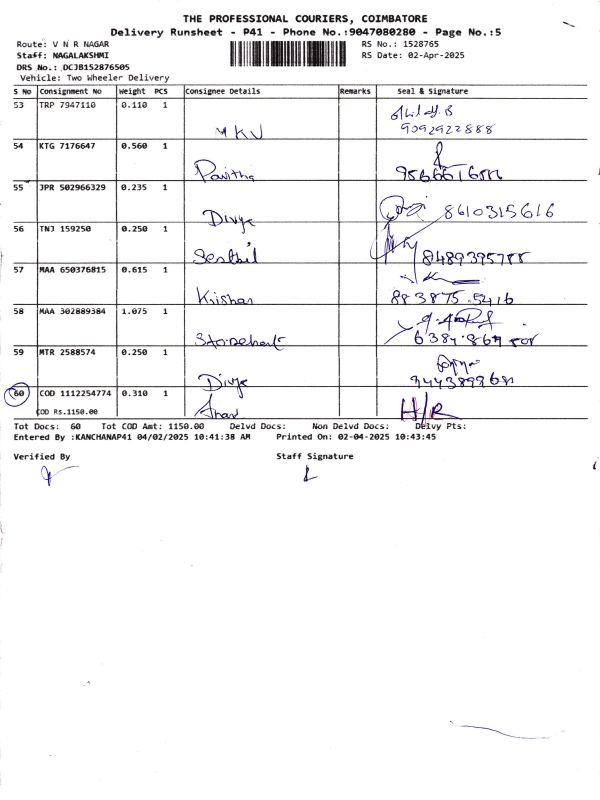 THE PROFESSIONAL COURIERS, COIMBATORE
Delivery Runsheet - P41 - Phone No.:9047080280 - Page No.:5
Route: V N R NAGAR RS No.: 1528765
Staff: NAGALAKSHMI RS Date: 02-Apr-2025
DRS No.: DCJB152876505
Vehicle: Two Wheeler Delivery
S No Consignment No Weight PCS Consignee Details Remarks Seal & Signature
53 TRP 7947110 0.110 1
M K V 9092922888
54 KTG 7176647 0.560 1
Pavitha
55 JPR 502966329 0.235 1
Divya 8610315616
56 TNJ 159250 0.250 1
Senthil
57 MAA 650376815 0.615 1
Krishan 883875 5216
58 MAA 302889384 1.075 1
59 MTR 2588574 0.250 1
Divya
60 COD 1112254774 0.310 1
COD Rs.1150.00 H/R
Tot Docs: 60 Tot COD Amt: 1150.00 Delvd Docs: Non Delvd Docs: Delvy Pts:
Entered By :KANCHANAP41 04/02/2025 10:41:38 AM Printed On: 02-04-2025 10:43:45
Verified By Staff Signature